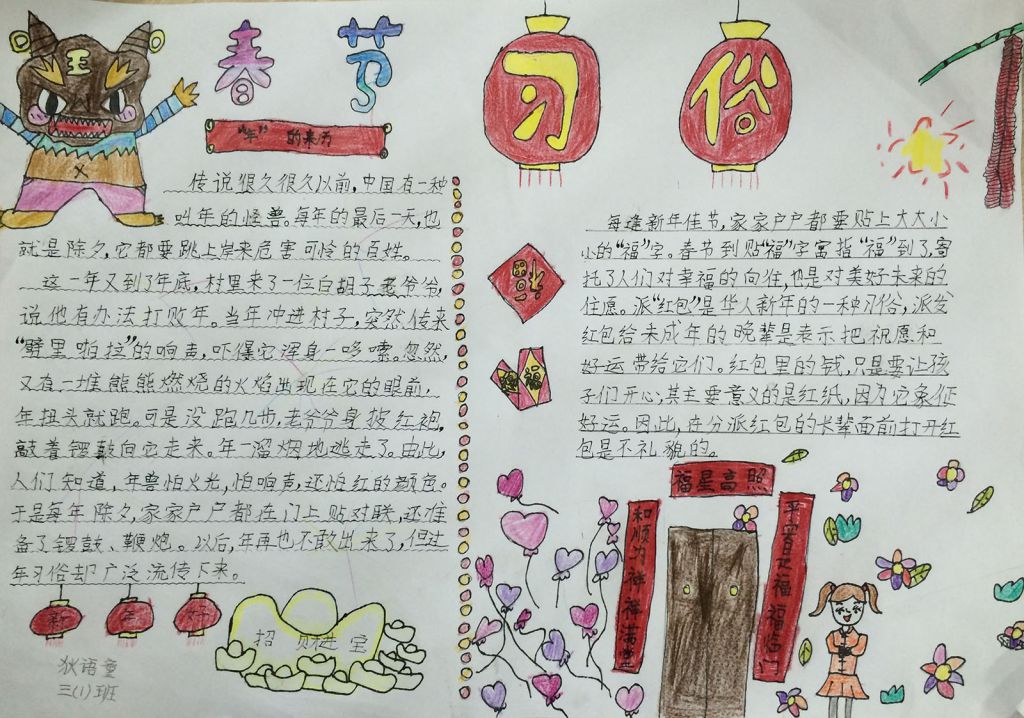 春节
习俗
“年”的来历
传说很久很久以前,中国有一种
叫年的怪兽。每年的最后一天,也
就是除夕,它都要跳上岸来危害可怜的百姓。
这一年又到了年底,村里来了一位白胡子老爷爷,
说他有办法打败年。当年冲进村子,突然,传来
“劈里啪拉”的响声,吓得它浑身一哆嗦。忽然,
又有一堆熊熊燃烧的火焰出现在它的眼前,
年扭头就跑。可是没跑几步,老爷爷身披红袍,
敲着锣鼓向它走来。年一溜烟地逃走了。由此,
人们知道,年兽怕火光,怕响声,还怕红的颜色。
于是每年除夕,家家户户都在门上贴对联,还准
备了锣鼓、鞭炮。以后,年再也不敢出来了,但过
年习俗却广泛流传下来。
新年好
招财进宝
狄语童
三(1)班
每逢新年佳节,家家户户都要贴上大大小
小的“福”字。春节到贴“福”字富指“福”到了,寄
托了人们对幸福的向往,也是对美好未来的
住愿。派“红包”是华人新年的一种习俗,派发
红包给未成年的晚辈是表示把祝愿和
好运带给它们。红包里的钱,只是要让孩
子们开心,其主要意义的是红纸,因为它象征
好运。因此,在分派红包的长辈面前打开红
包是不礼貌的。
福
福
福星高照
和顺为祥祥满堂
平安是福福临门